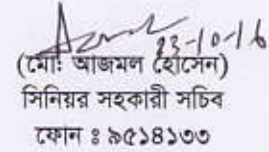 23-10-16
(মোঃ আজমল হোসেন)
সিনিয়র সহকারী সচিব
ফোন ঃ ৯৫১৪১৩৩